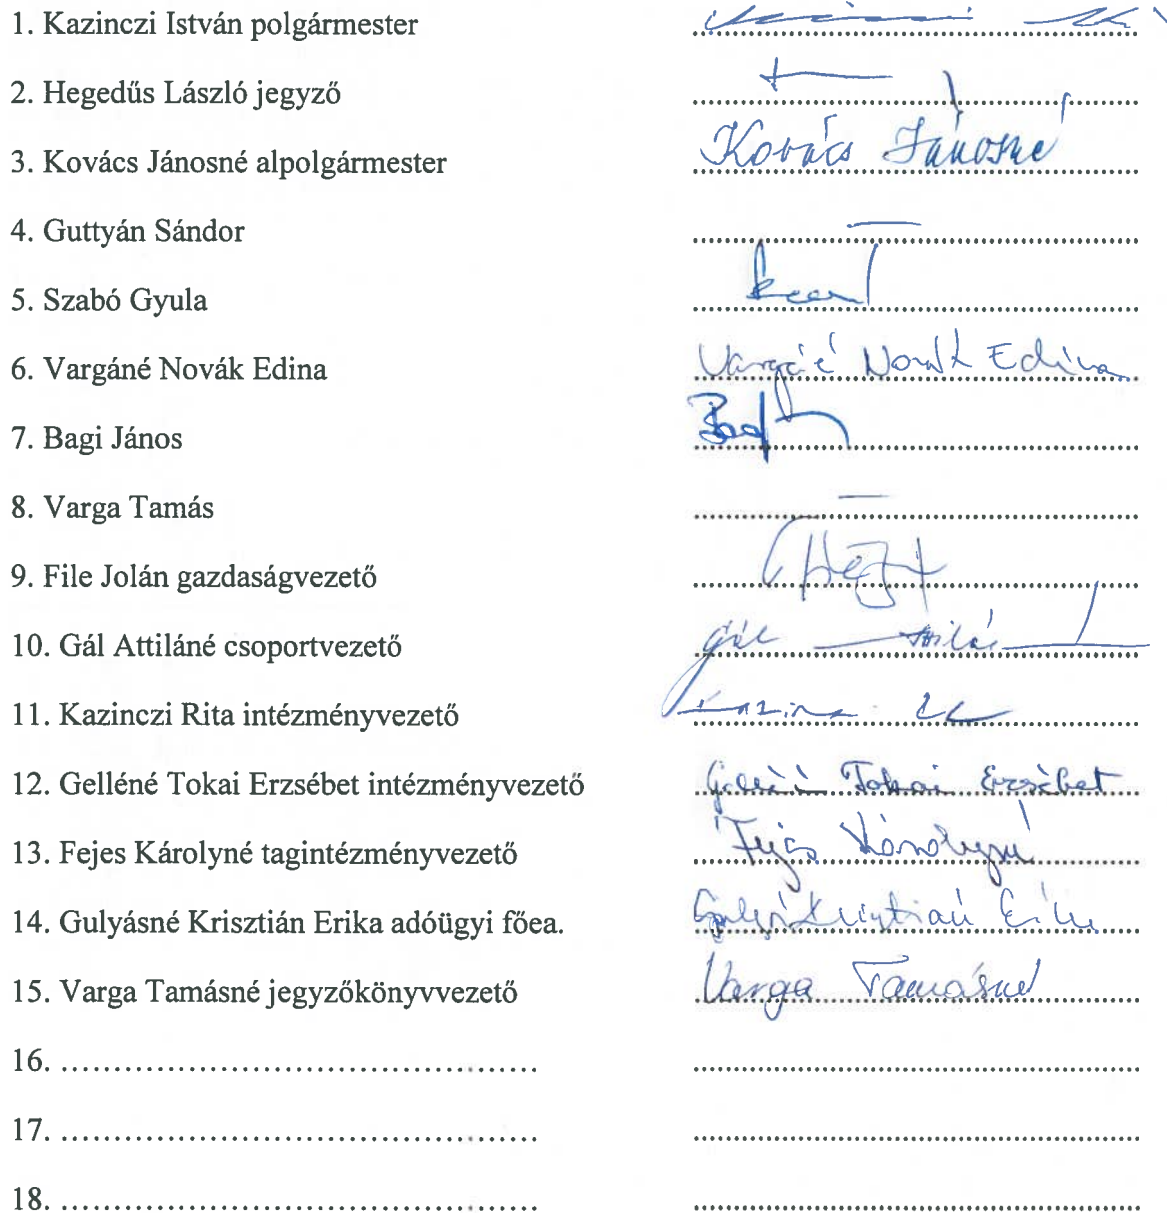 1. Kazinczi István polgármester
2. Hegedűs László jegyző
3. Kovács Jánosné alpolgármester Kovács Jánosné
4. Guttyán Sándor
5. Szabó Gyula
6. Vargáné Novák Edina Vargáné Novák Edina
7. Bagi János
8. Varga Tamás
9. File Jolán gazdaságvezető
10. Gál Attiláné csoportvezető Gál
11. Kazinczi Rita intézményvezető
12. Gelléné Tokai Erzsébet intézményvezető Gelléné Tokai Erzsébet
13. Fejes Károlyné tagintézményvezető Fejes Károlyné
14. Gulyásné Krisztián Erika adóügyi főea.
15. Varga Tamásné jegyzőkönyvvezető Varga Tamásné
16. ............................................
17. ............................................
18. ............................................